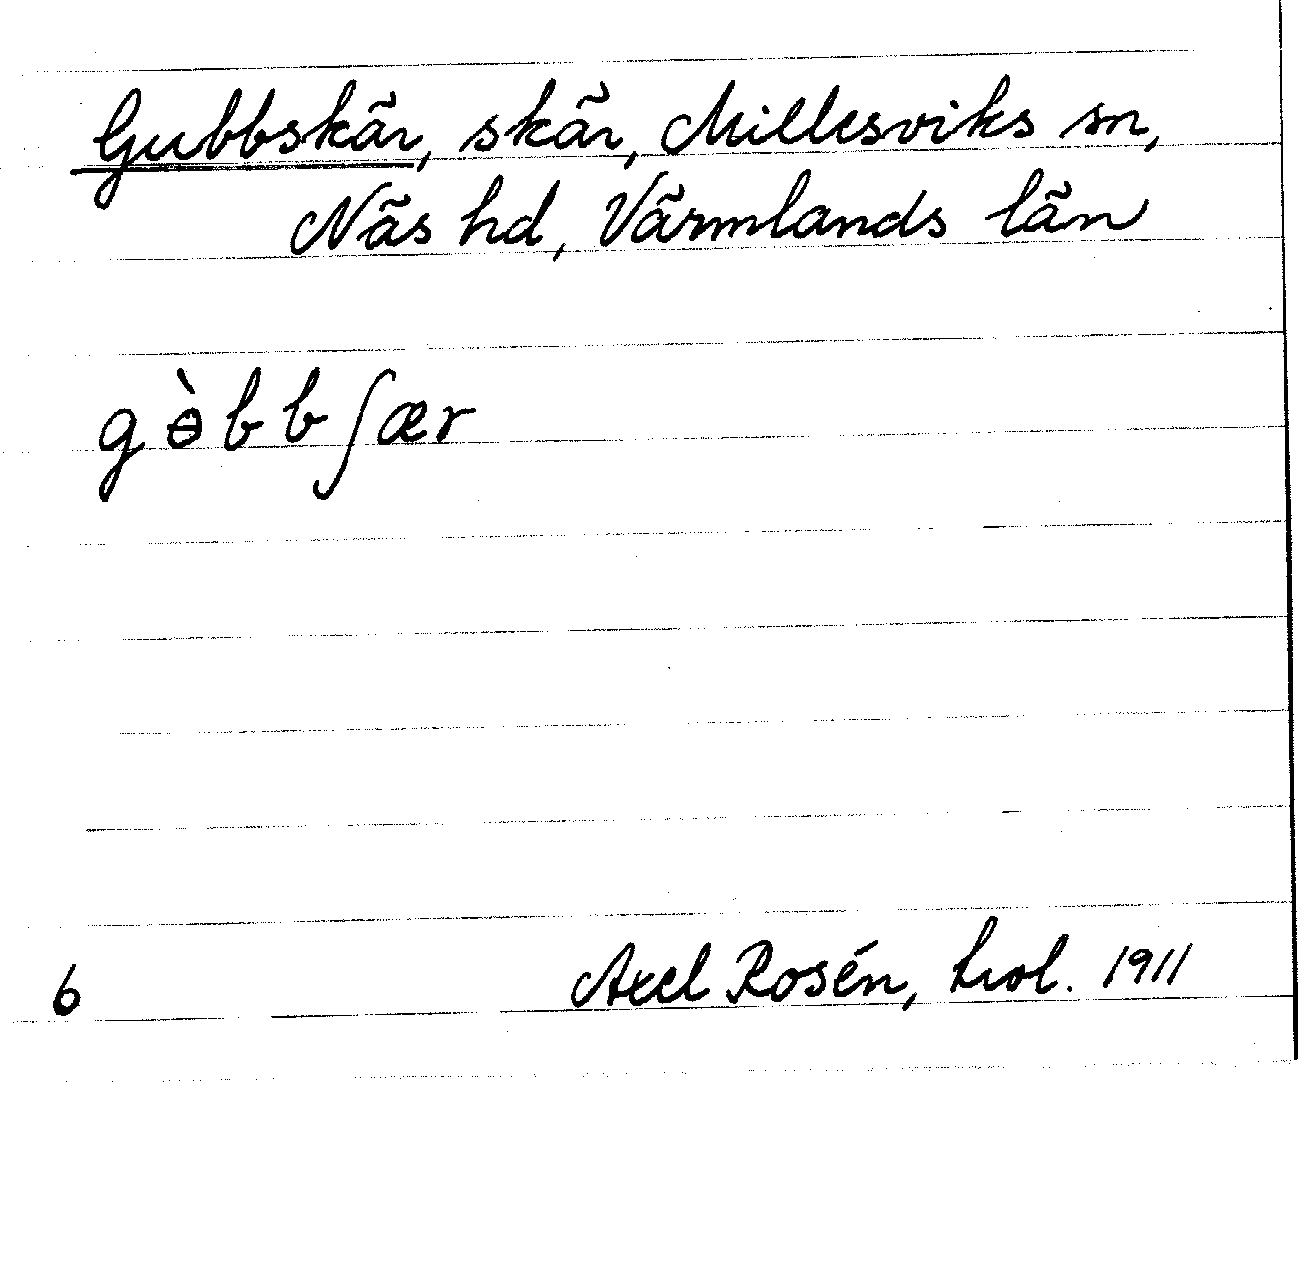 Gubbskär, skär, Millesviks sn,
Näs hd, Värmlands län
gɵ̀bbʃær
6 Axel Rosén, kol. 1911